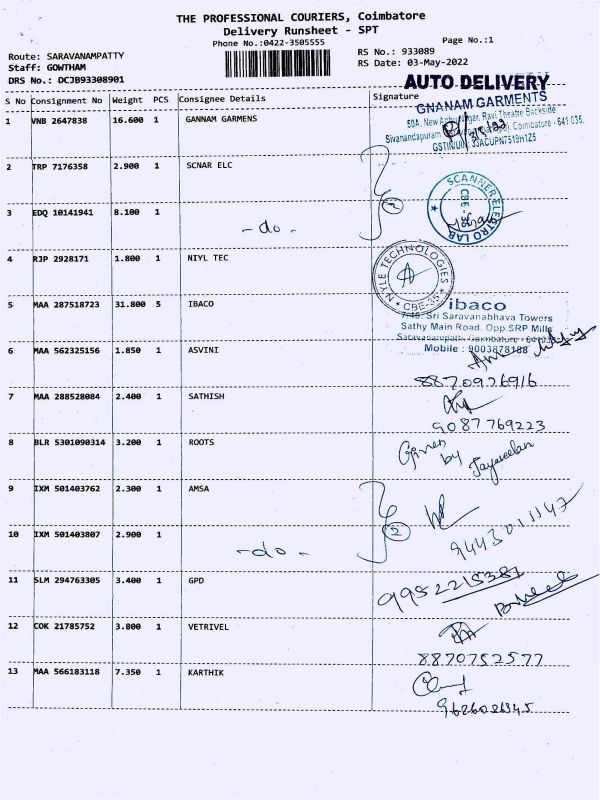 THE PROFESSIONAL COURIERS, Coimbatore
Delivery Runsheet - SPT
Phone No.:0422-3505555
Page No.:1
Route: SARAVANAMPATTY
RS No.: 933089
Staff: GOWTHAM
RS Date: 03-May-2022
DRS No.: DCJB93308901
AUTO DELIVERY
S No Consignment No Weight PCS Consignee Details Signature
GNANAM GARMENTS
1 VNB 2647838 16.600 1 GANNAM GARMENS
Ravi Theatre Backside
Sivanandapuram Coimbatore - 641 035.
2 TRP 7176358 2.900 1 SCNAR ELC
SCANNER ELECTRO LAB
2
3 EDQ 10141941 8.100 1
- do -
4 RJP 2928171 1.800 1 NIYL TEC
NYLE TECHNOLOGIES
CBE-35
5 MAA 287518723 31.800 5 IBACO
ibaco
Sri Saravanabhava Towers
Sathy Main Road, Opp.SRP Mills
Mobile : 9003878188
6 MAA 562325156 1.850 1 ASVINI
8870926916
7 MAA 288528084 2.400 1 SATHISH
9087769223
8 BLR 5301090314 3.200 1 ROOTS
Given
by
Jayaseelan
9 IXM 501403762 2.300 1 AMSA
2
10 IXM 501403807 2.900 1
- do -
9443011147
11 SLM 294763305 3.400 1 GPD
9952215381
12 COK 21785752 3.800 1 VETRIVEL
8870752577
13 MAA 566183118 7.350 1 KARTHIK
9626026345